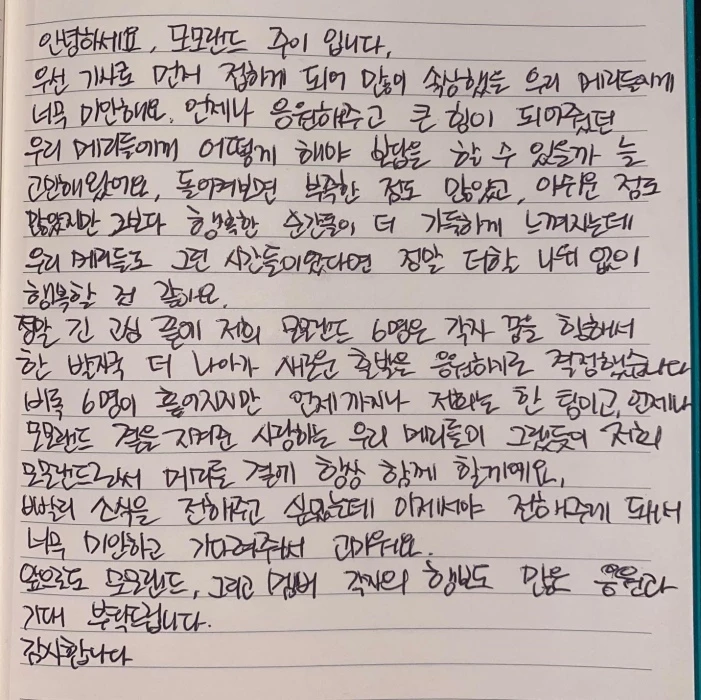 안녕하세요, 모모랜드 주이 입니다.
우선 기사로 먼저 접하게 되어 많이 속상했을 우리 메리들에게
너무 미안해요. 언제나 응원해주고 큰 힘이 되어줬던
우리 메리들에게 어떻게 해야 보답을 할 수 있을까 늘
고민해왔어요, 돌이켜보면 부족한 점도 많았고, 아쉬운 점도
많았지만 그보다 행복한 순간들이 더 가득하게 느껴지는데
우리 메리들도 그런 시간들이었다면 정말 더할 나위 없이
행복할 것 같아요.
정말 긴 고심 끝에 저희 모모랜드 6명은 각자 꿈을 향해서
한 발자국 더 나아가 새로운 출발은 응원하기로 결정했습니다
비록 6명이 흩어지지만 언제까지나 저희는 한 팀이고, 언제나
모모랜드 곁을 지켜준 사랑하는 우리 메리들이 그랬듯이 저희
모모랜드라서 메리들 곁에 항상 함께 할게예요.
빨리 소식을 전해주고 싶었는데 이제서야 전해주게 돼서
너무 미안하고 기다려줘서 고마워요.
앞으로도 모모랜드, 그리고 멤버 각자의 행보도 많은 응원과
기대 부탁드립니다.
감사합니다